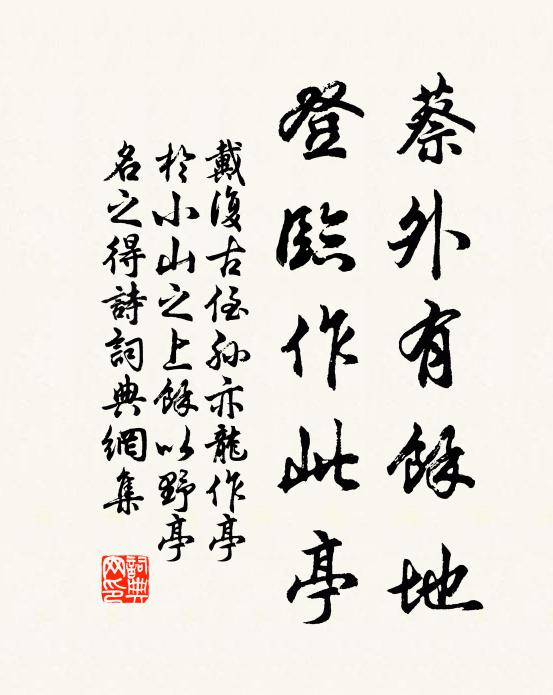 蔡外有餘地
登臨作此亭
戴復古侄孫亦龍作亭
於小山之上餘以野亭
名之得詩詞典網集
詞典
网印